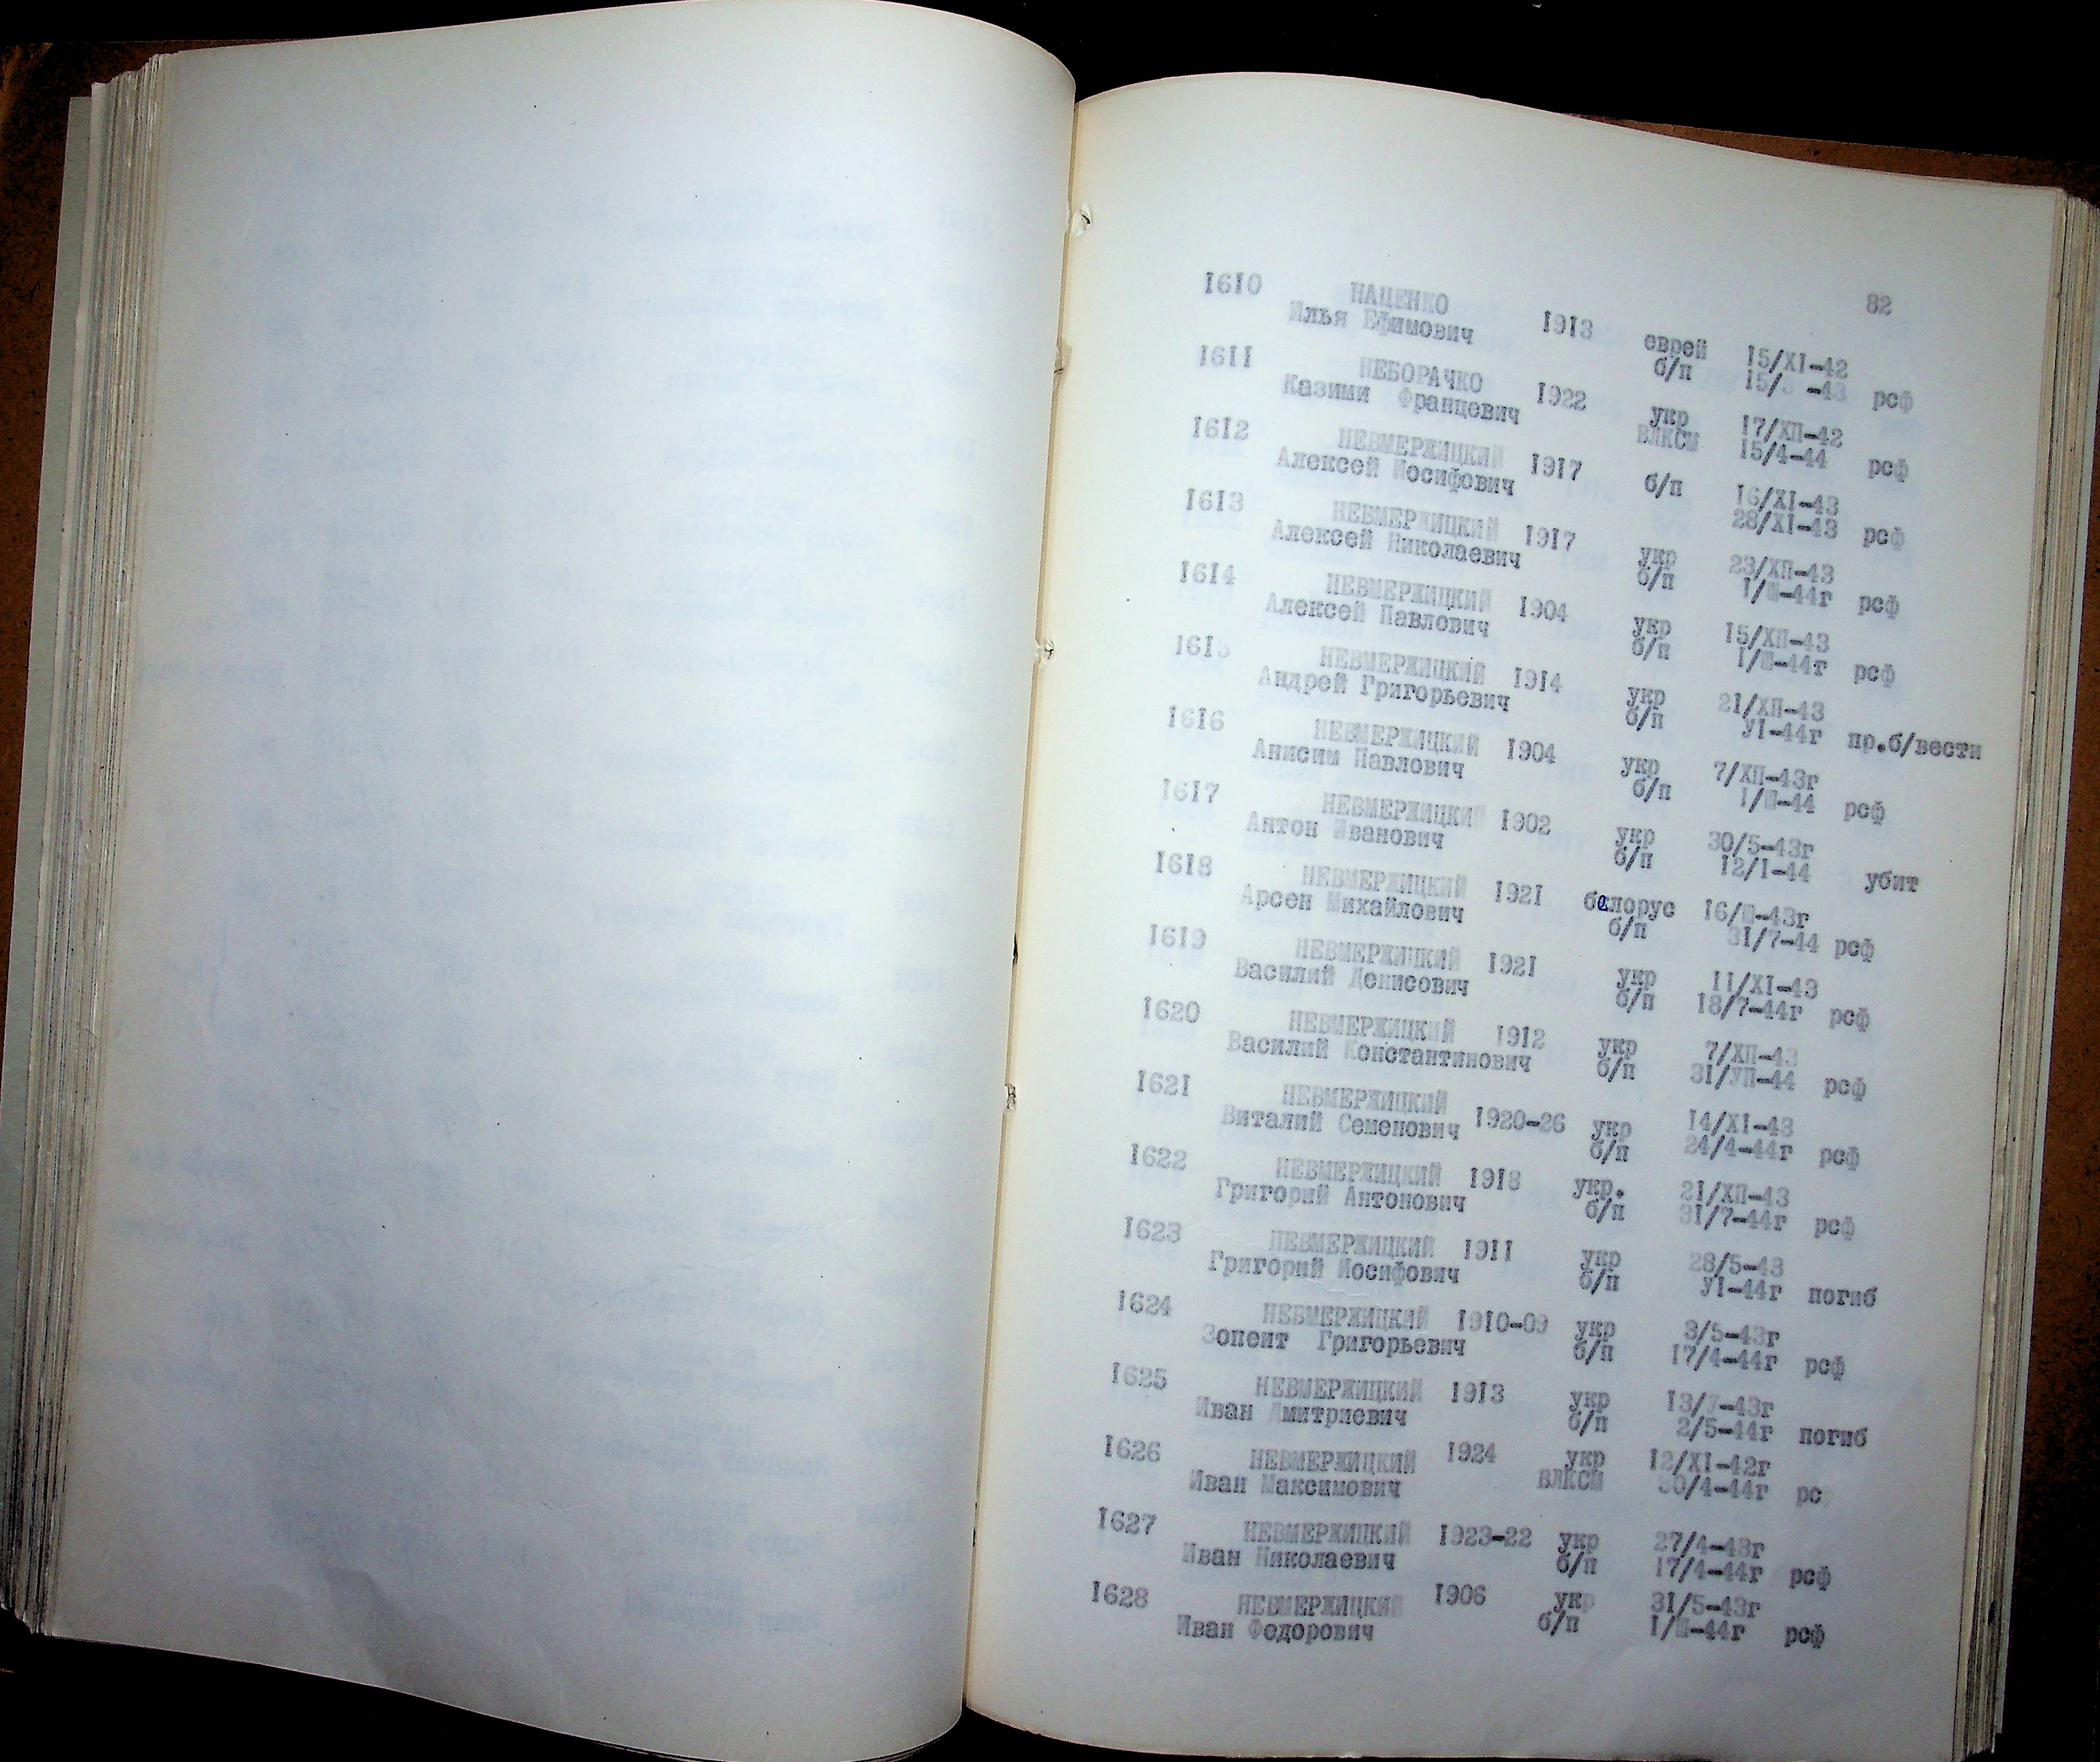 82
1610 НАЦЕНКО 1913 еврей 15/XI-42
Илья Ефимович б/п 15/ -43 рсф
1611 НЕБОРАЧКО 1922 укр 17/ХП-42
Казими Францевич ВЛКСМ 15/4-44 рсф
1612 НЕВМЕРЖИЦКИЙ 1917 б/п 16/XI-43
Алексей Иосифович 28/XI-43 рсф
1613 НЕВМЕРЖИЦКИЙ 1917 укр 23/ХП-43
Алексей Николаевич б/п I/Ш-44г рсф
1614 НЕВМЕРЖИЦКИЙ 1904 укр 15/ХП-43
Алексей Павлович б/п I/Ш-44г рсф
1615 НЕВМЕРЖИЦКИЙ 1914 укр 21/ХП-43
Андрей Григорьевич б/п УI-44г пр.б/вести
1616 НЕВМЕРЖИЦКИЙ 1904 укр 7/ХП-43г
Анисим Павлович б/п I/Ш-44 рсф
1617 НЕВМЕРЖИЦКИЙ 1902 укр 30/5-43г
Антон Иванович б/п 12/I-44 убит
1618 НЕВМЕРЖИЦКИЙ 1921 белорус 16/Ш-43г
Арсен Михайлович б/п 31/7-44 рсф
1619 НЕВМЕРЖИЦКИЙ 1921 укр 11/XI-43
Василий Денисович б/п 18/7-44г рсф
1620 НЕВМЕРЖИЦКИЙ 1912 укр 7/ХП-43
Василий Константинович б/п 31/УП-44 рсф
1621 НЕВМЕРЖИЦКИЙ 1920-26 укр 14/XI-43
Виталий Семенович б/п 24/4-44г рсф
1622 НЕВМЕРЖИЦКИЙ 1918 укр. 21/ХП-43
Григорий Антонович б/п 31/7-44г рсф
1623 НЕВМЕРЖИЦКИЙ 1911 укр 28/5-43
Григорий Иосифович б/п УI-44г погиб
1624 НЕВМЕРЖИЦКИЙ 1910-09 укр 3/5-43г
Зопент Григорьевич б/п 17/4-44г рсф
1625 НЕВМЕРЖИЦКИЙ 1913 укр 13/7-43г
Иван Дмитриевич б/п 2/5-44г погиб
1626 НЕВМЕРЖИЦКИЙ 1924 укр 12/XI-42г
Иван Максимович ВЛКСМ 30/4-44г рс
1627 НЕВМЕРЖИЦКИЙ 1923-22 укр 27/4-43г
Иван Николаевич б/п 17/4-44г рсф
1628 НЕВМЕРЖИЦКИЙ 1906 укр 31/5-43г
Иван Федорович б/п I/Ш-44г рсф